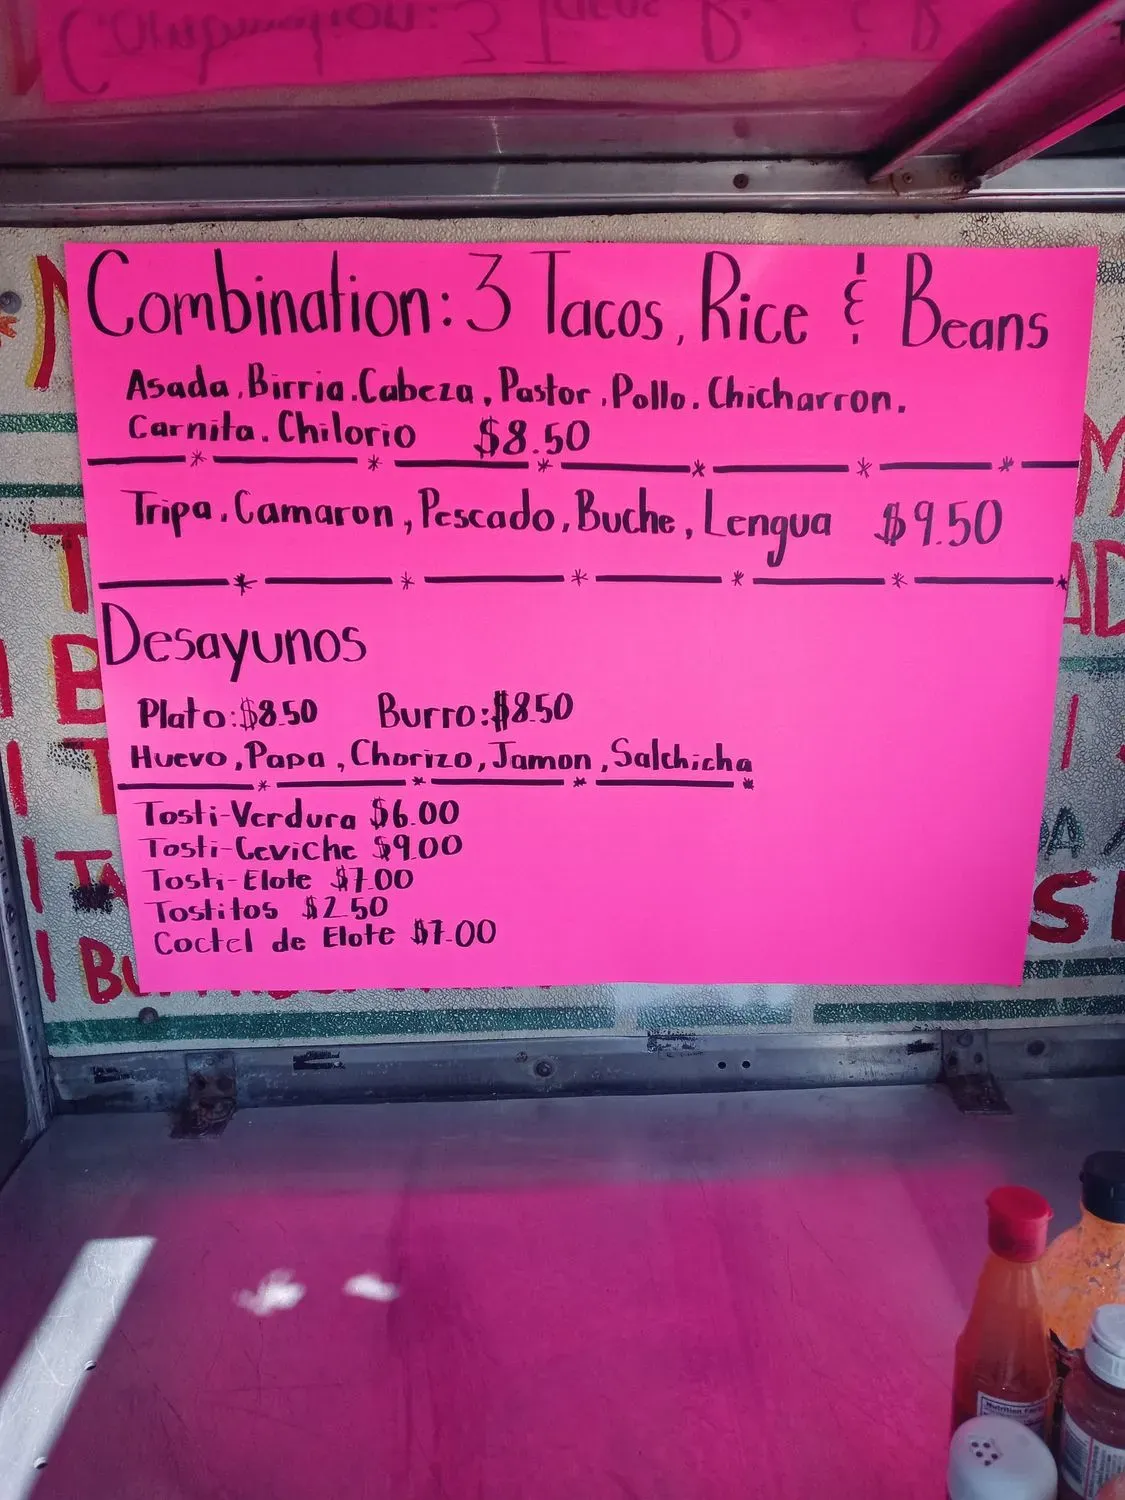 Combination: 3 Tacos, Rice & Beans
Asada, Birria. Cabeza, Pastor, Pollo. Chicharron.
Carnita. Chilorio $8.50
Tripa, Camaron, Pescado, Buche, Lengua $9.50
Desayunos
Plato: $8.50 Burro: $8.50
Huevo, Papa, Chorizo, Jamon, Salchicha
Tosti-Verdura $6.00
Tosti-Ceviche $9.00
Tosti-Elote $7.00
Tostitos $2.50
Coctel de Elote $7.00